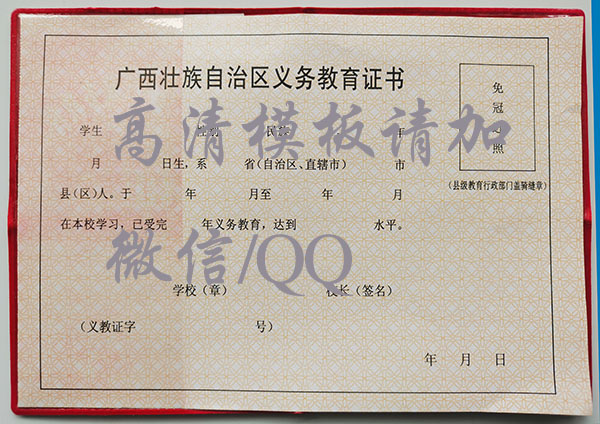 广西壮族自治区义务教育证书
免冠 照
学生 性别 民族 年
高清模板请加
月 日生，系 省（自治区、直辖市） 市
（县级教育行政部门盖骑缝章）
县（区）人。于 年 月至 年 月
在本校学习，已受完 年义务教育，达到 水平。
微信/QQ
学校（章） 校长（签名）
（义教证字 号）
年 月 日